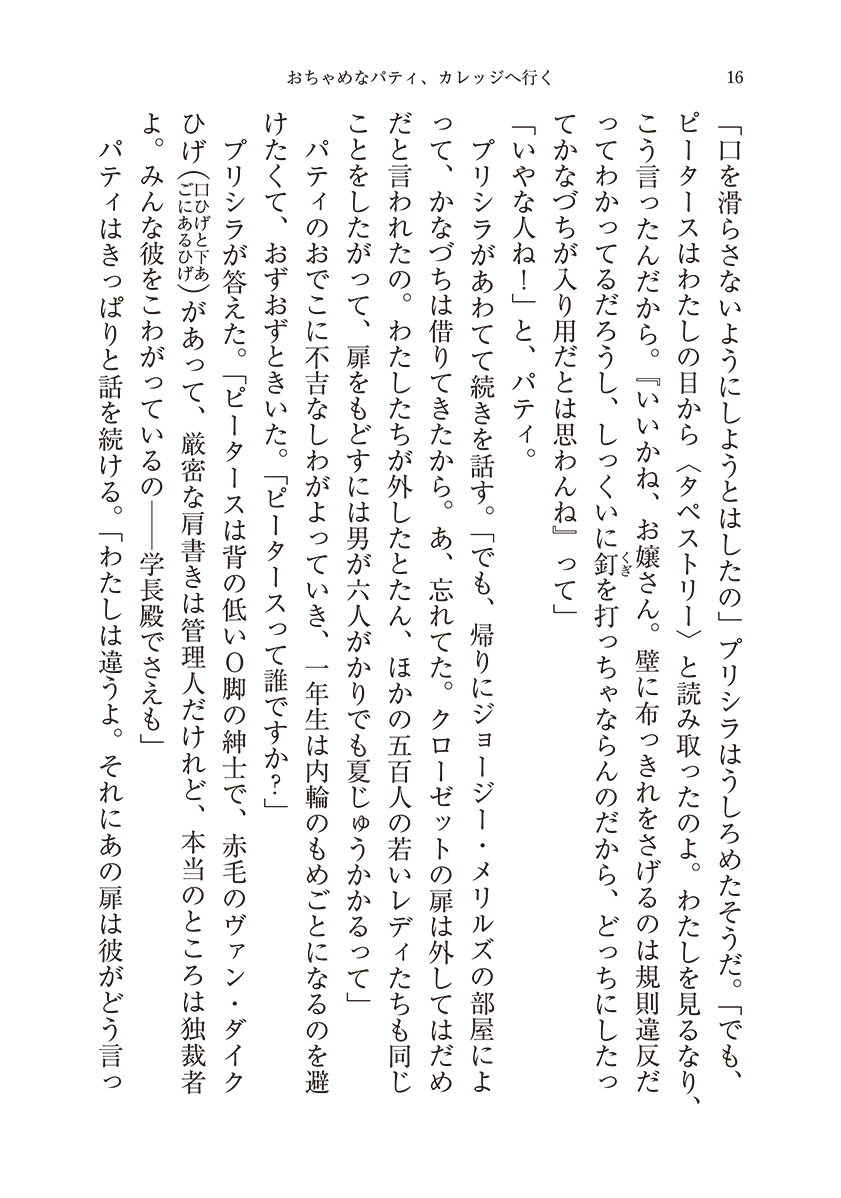 おちゃめなパティ、カレッジへ行く
16
「口を滑らさないようにしようとはしたの」プリシラはうしろめたそうだ。「でも、
ピータースはわたしの目から〈タペストリー〉と読み取ったのよ。わたしを見るなり、
こう言ったんだから。『いいかね、お嬢さん。壁に布っきれをさげるのは規則違反だ
ってわかってるだろうし、しっくいに釘を打っちゃならんのだから、どっちにしたっ
くぎ
てかなづちが入り用だとは思わんね』って」
「いやな人ね！」と、パティ。
プリシラがあわてて続きを話す。「でも、帰りにジョージー・メリルズの部屋によ
って、かなづちは借りてきたから。あ、忘れてた。クローゼットの扉は外してはだめ
だと言われたの。わたしたちが外したとたん、ほかの五百人の若いレディたちも同じ
ことをしたがって、扉をもどすには男が六人がかりでも夏じゅうかかるって」
パティのおでこに不吉なしわがよっていき、一年生は内輪のもめごとになるのを避
けたくて、おずおずときいた。「ピータースって誰ですか？」
プリシラが答えた。「ピータースは背の低いO脚の紳士で、赤毛のヴァン・ダイク
ひげ（口ひげと下あごにあるひげ）があって、厳密な肩書きは管理人だけれど、本当のところは独裁者
よ。みんな彼をこわがっているの――学長殿でさえも」
パティはきっぱりと話を続ける。「わたしは違うよ。それにあの扉は彼がどう言っ